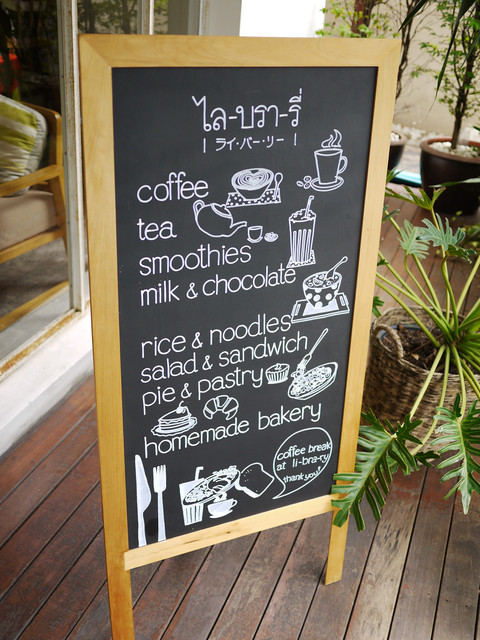 ไล-บรา-รี่
| ライ・バー・リー |
coffee
tea
smoothies
milk & chocolate
rice & noodles
salad & sandwich
pie & pastry
homemade bakery
coffee break
at li-bra-ry
thank you!